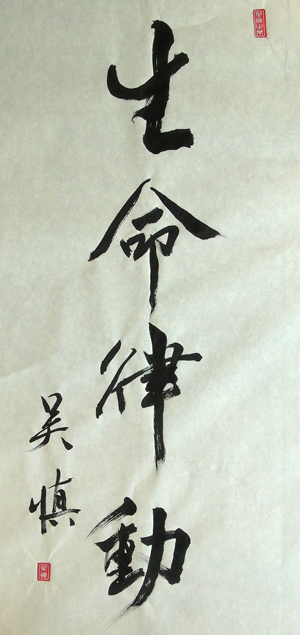 生命律動
吴慎